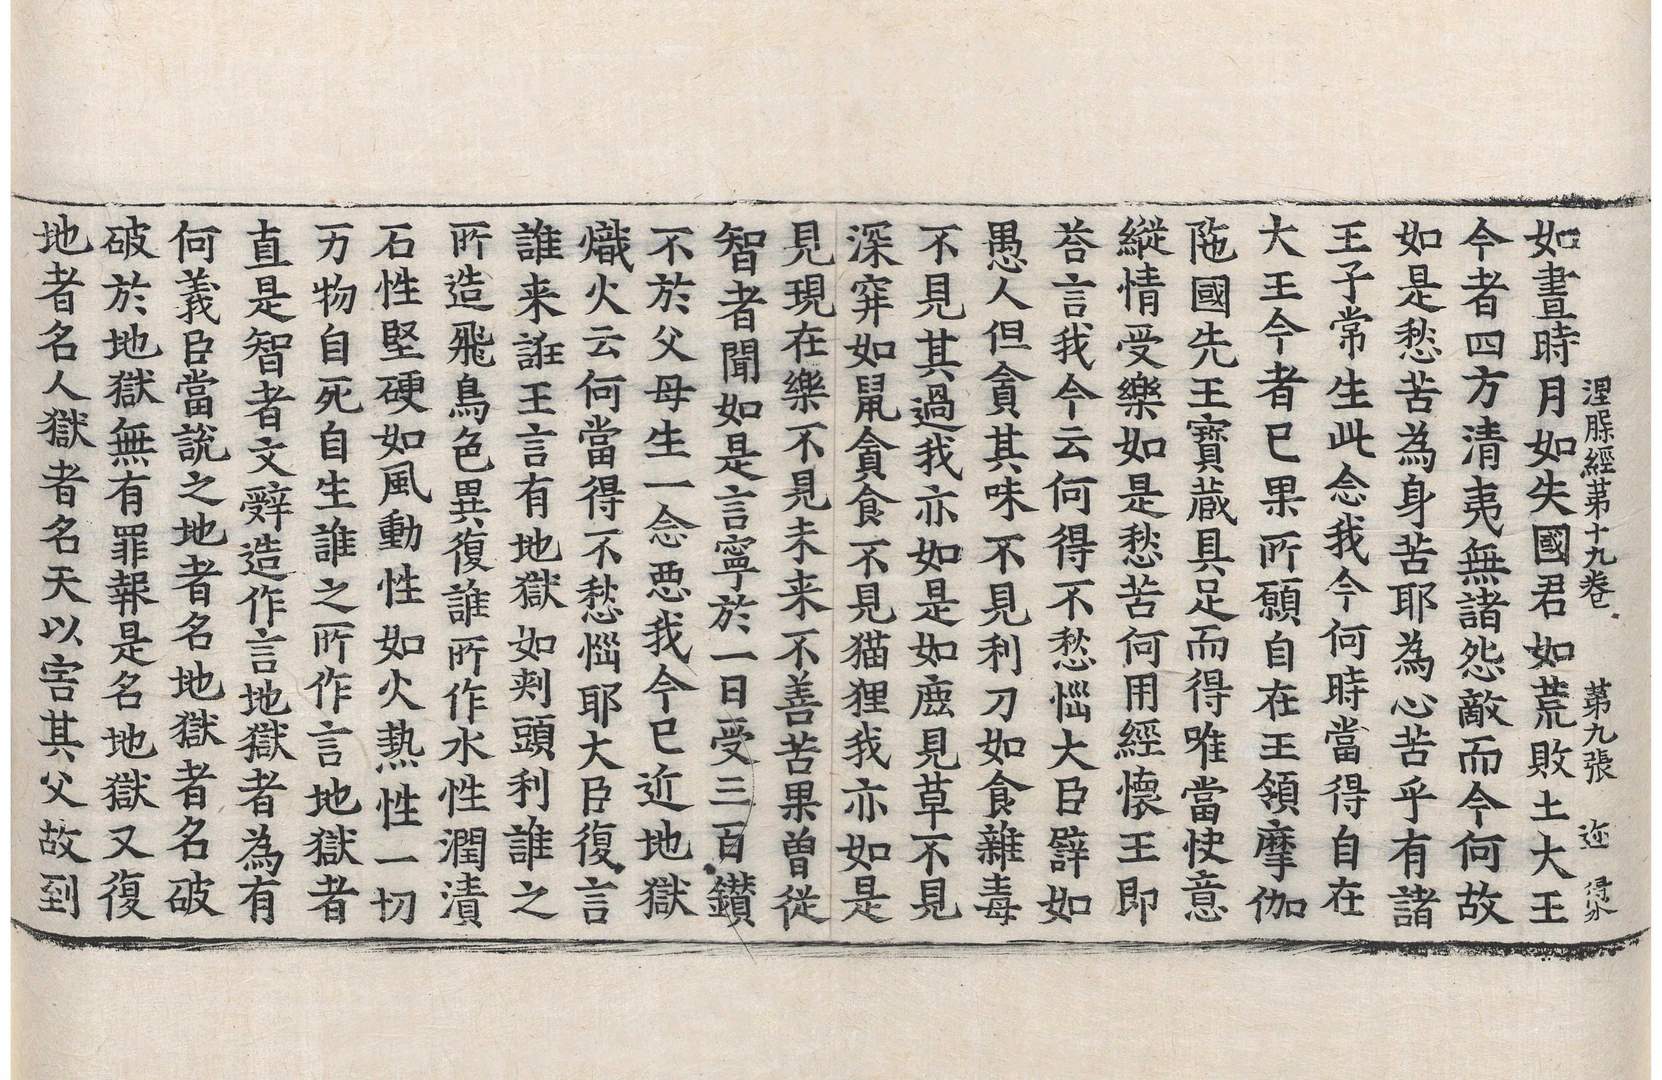 涅脲經第十九卷 第九張 迩
如晝時月如失國君如荒敗土大王
今者四方清夷無諸怨敵而今何故
如是愁苦為身苦耶為心苦乎有諸
王子常生此念我今何時當得自在
大王今者已果所願自在王領摩伽
陁國先王寶蔵具足而得唯當快意
縱情受樂如是愁苦何用經懷王即
荅言我今云何得不愁惱大臣譬如
愚人但貪其味不見利刀如食雜毒
不見其過我亦如是如鹿見草不見
深穽如鼠貪食不見猫狸我亦如是
見現在樂不見未来不善苦果曽從
智者聞如是言寧於一日受三百鑽
不於父母生一念惡我今已近地獄
熾火云何當得不愁惱耶大臣復言
誰来誑王言有地獄如刾頭利誰之
所造飛鳥色異復誰所作水性潤漬
石性堅硬如風動性如火熱性一切
万物自死自生誰之所作言地獄者
直是智者文辝造作言地獄者為有
何義臣當說之地者名地獄者名破
破於地獄無有罪報是名地獄又復
地者名人獄者名天以害其父故到